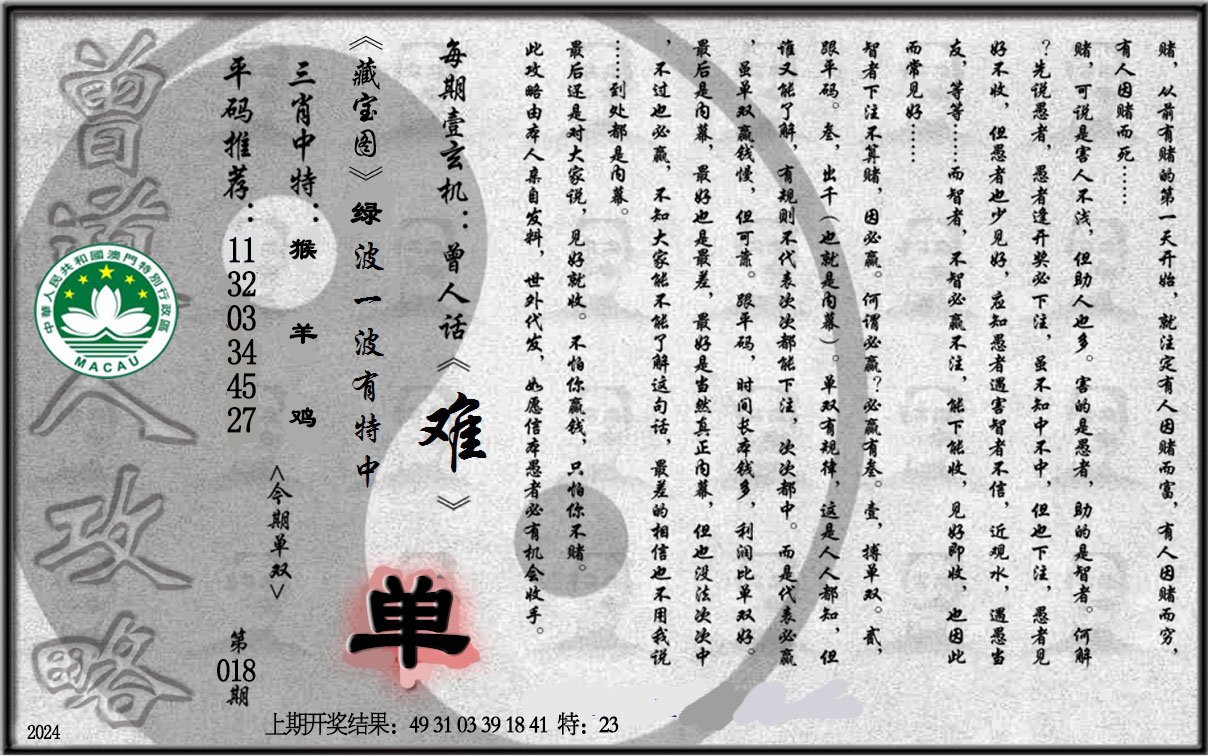 赌，从前有赌的第一天开始，就注定有人因赌而富，有人因赌而穷，
有人因赌而死……
赌，可说是害人不浅，但助人也多。害的是愚者，助的是智者。何解
？先说愚者，愚者逢开奖必下注，虽不知中不中，但也下注，愚者见
好不收，但愚者也少见好，应知愚者遇害智者不信，近观水，遇愚当
友，等等……而智者，不智必赢不注，能下能收，见好即收，也因此
而常见好……
智者下注不算赌，因必赢。何谓必赢？必赢有叁。壹，搏单双。贰，
跟平码。叁，出千（也就是内幕）。单双有规律，这是人人都知，但
谁又能了解，有规则不代表次次都能下注，次次都中。而是代表必赢
，虽单双赢钱慢，但可靠。跟平码，时间长本钱多，利润比单双好。
最后是内幕，最好也是最差，最好是当然真正内幕，但也没法次次中
，不过也必赢，不知大家能不能了解这句话，最差的相信也不用我说
……到处都是内幕。
最后还是对大家说，见好就收。不怕你赢钱，只怕你不赌。
此攻略由本人亲自发料，世外代发，如愿信本愚者必有机会收手。
每期壹玄机：曾人话《难》
《藏宝图》绿波一波有特中
单
三肖中特：猴 羊 鸡
<今期单双>
平码推荐：11 32 03 34 45 27
第018期
曾道人攻略
中華人民共和國澳門特別行政區
MACAU
2024
上期开奖结果：49 31 03 39 18 41 特：23